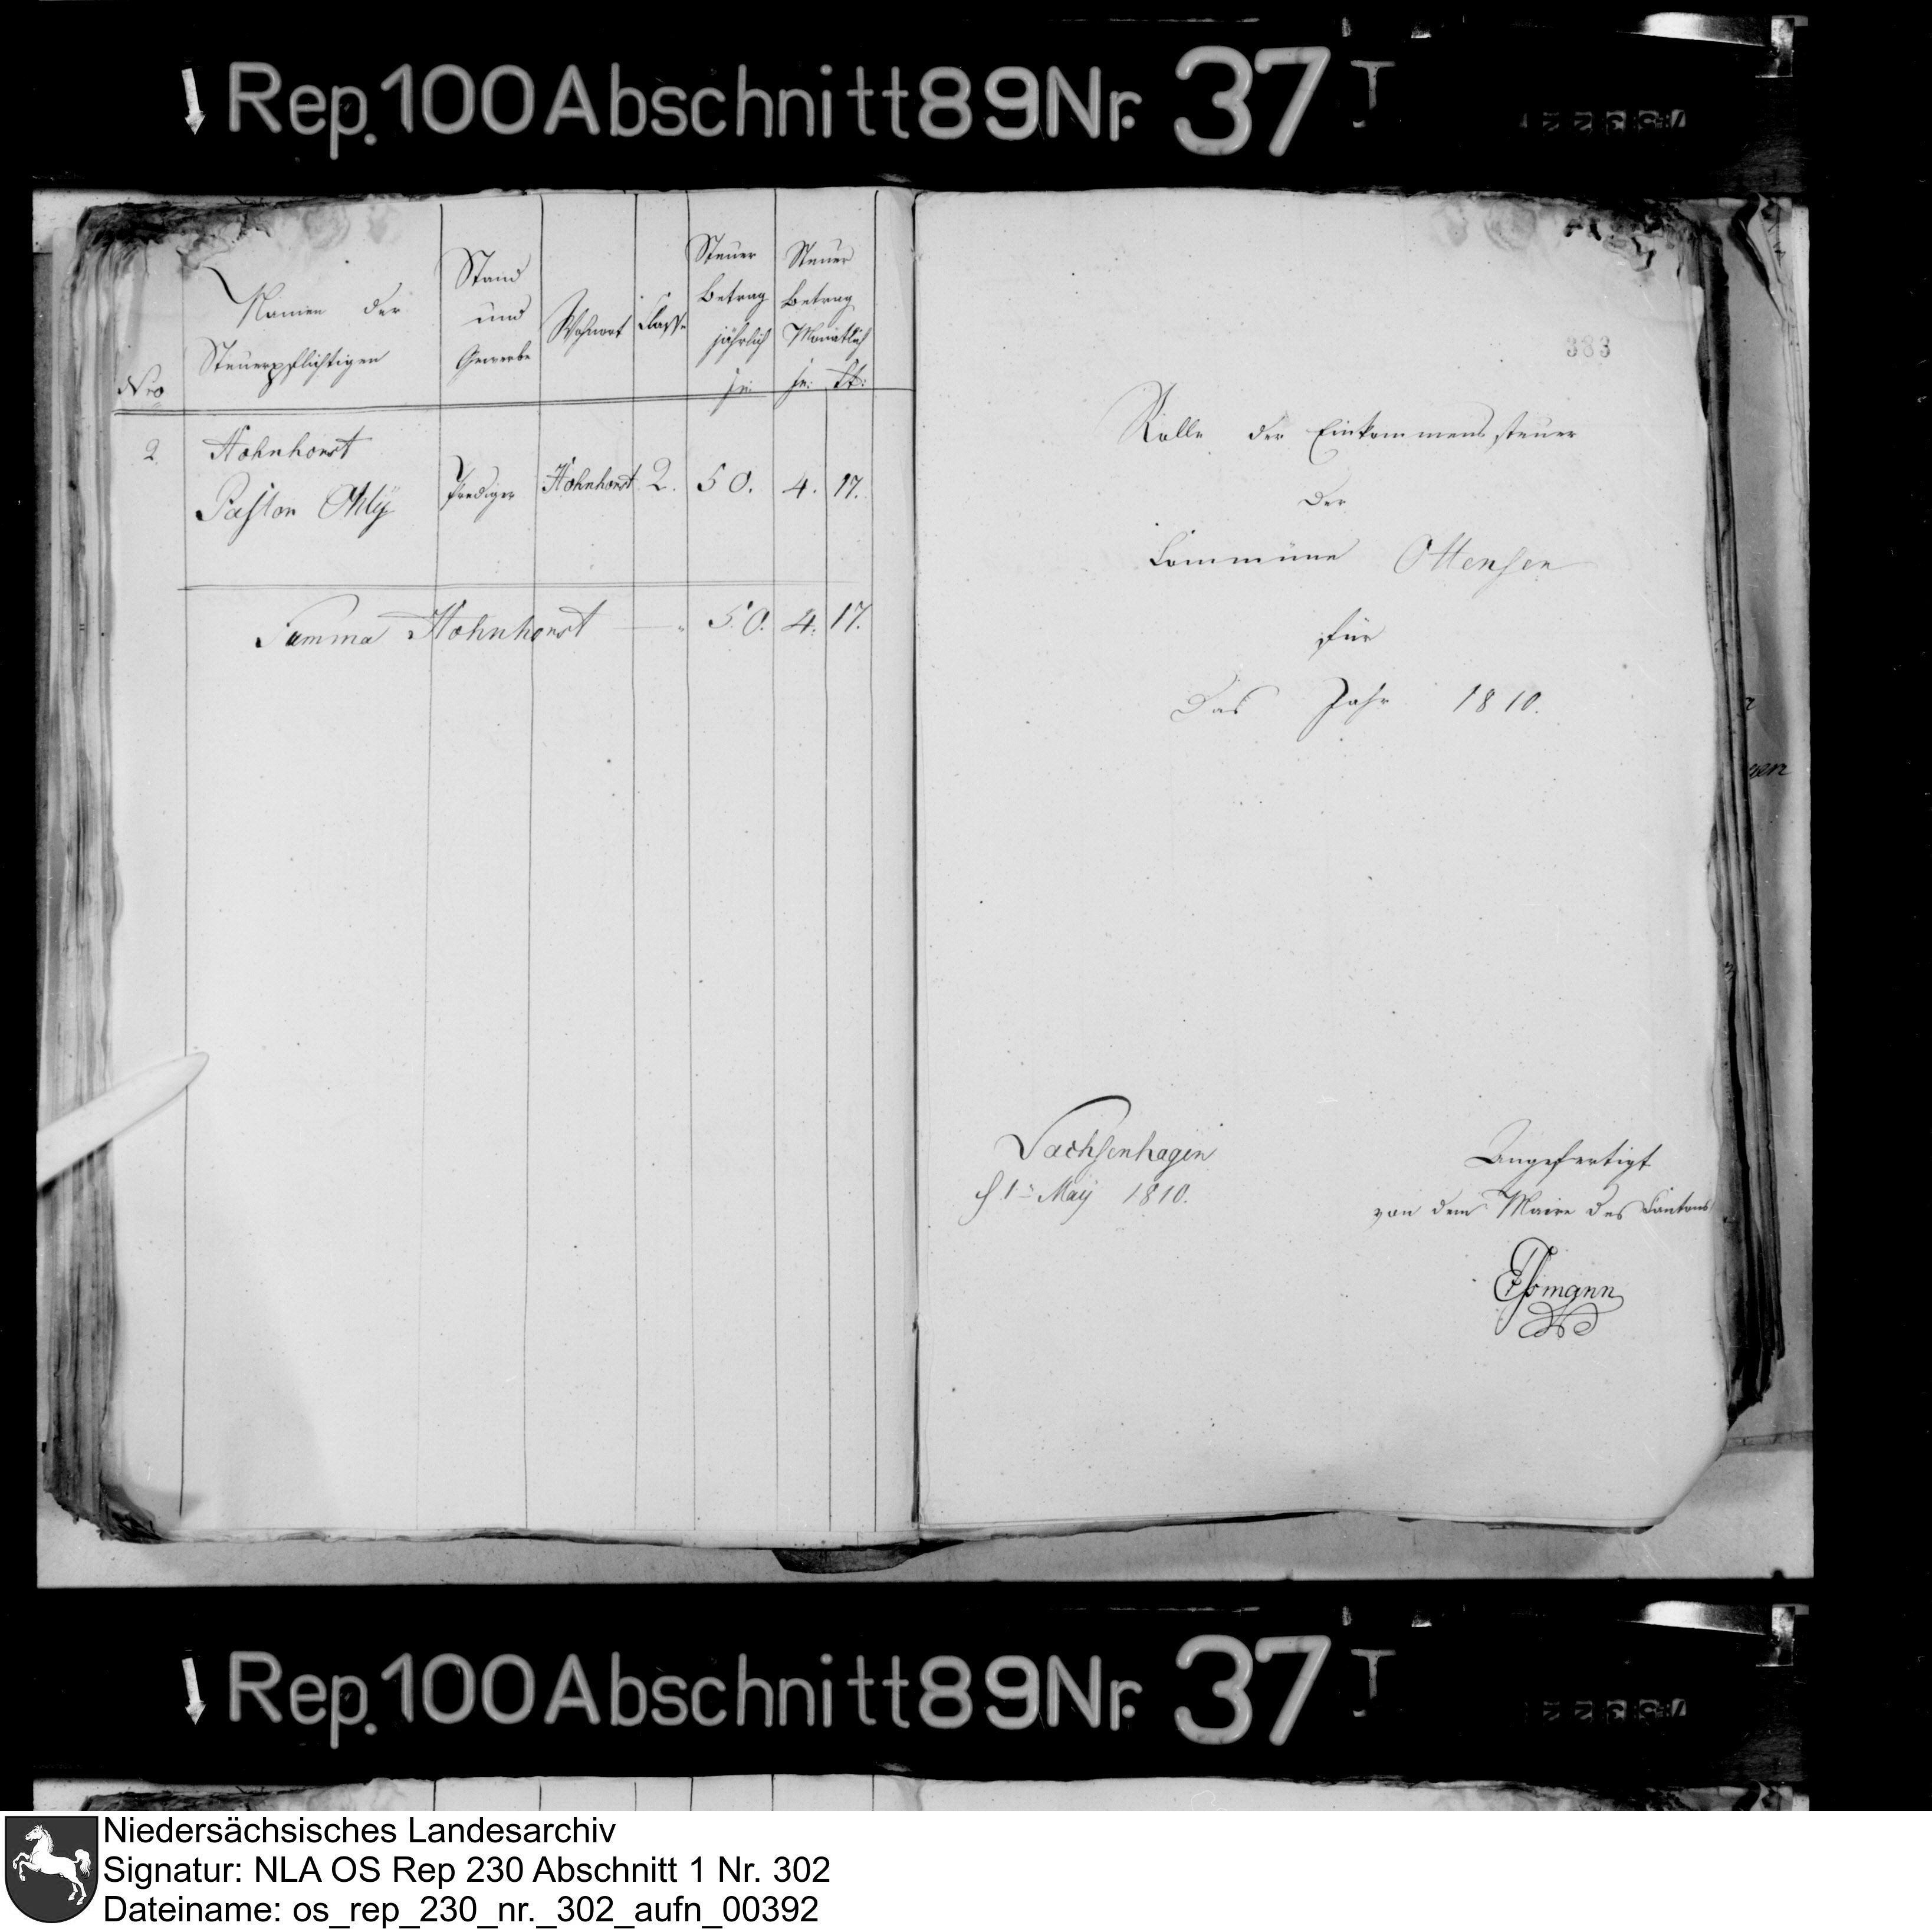 Rep. 100 Abschnitt 89 Nr. 37 I
Nro
Namen der
Steuerpflichtigen
Stand
und
Gewerbe
Wohnort
Classe
Steuer
Betrag
jährlich
fr:
Steuer
Betrag
Monatlich
fr: Ct:
2. Hohnhorst
Pastor Ohlÿ Prediger Hohnhorst 2. 50. 4. 17.
Summa Hohnhorst 50. 4. 17.
383
Rolle der Einkommensteuer
der
Commüne Ottensen
für
das Jahr 1810.
Sachsenhagen
1 Maÿ 1810.
Angefertigt
von dem Maire des Cantons
Rep. 100 Abschnitt 89 Nr. 37 I
Niedersächsisches Landesarchiv
Signatur: NLA OS Rep 230 Abschnitt 1 Nr. 302
Dateiname: os_rep_230_nr._302_aufn_00392